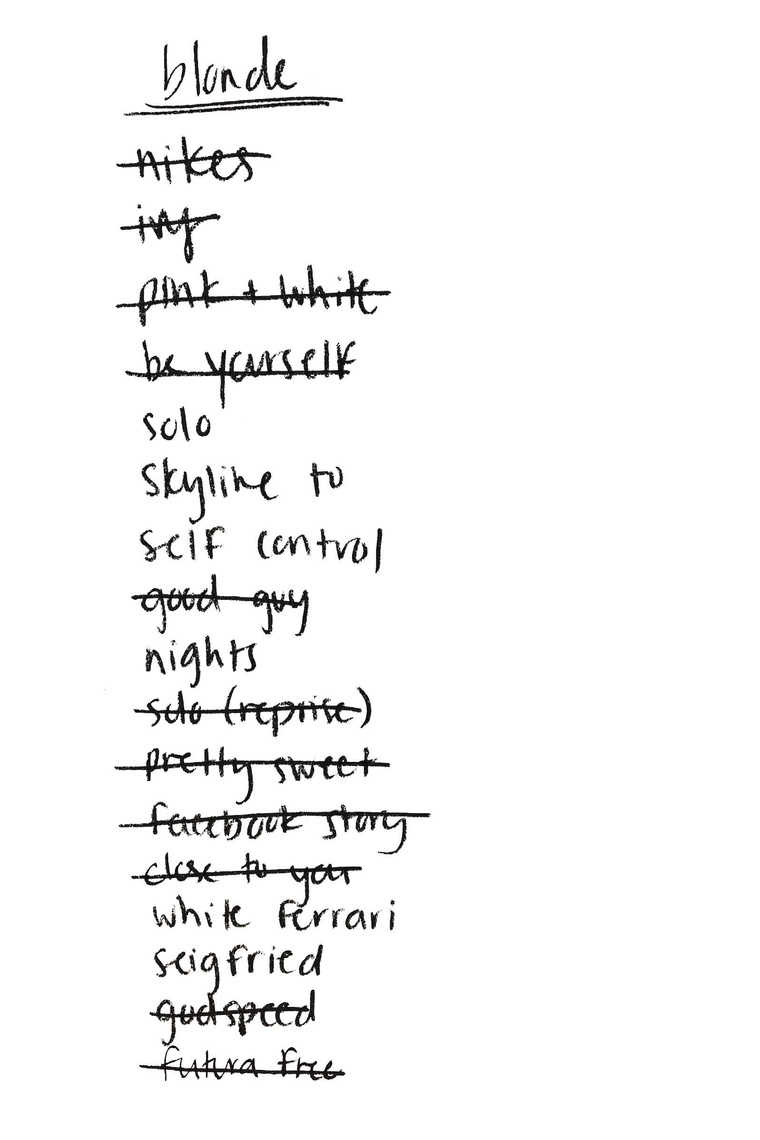 blonde
nikes
ivy
pink + white
be yourself
solo
skyline to
self control
good guy
nights
solo (reprise)
pretty sweet
facebook story
close to you
white ferrari
seigfried
godspeed
futura free